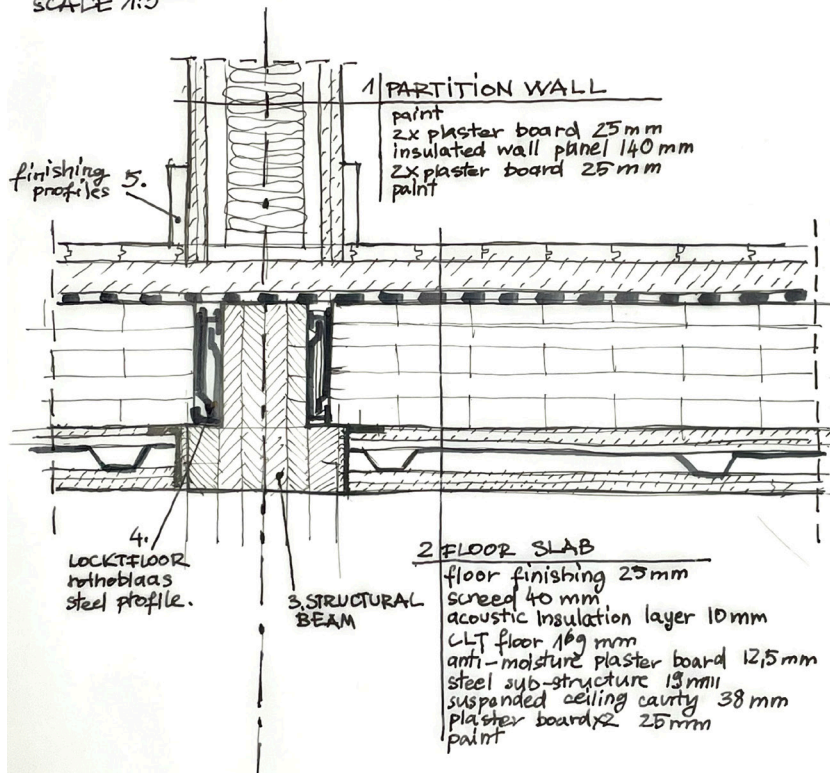 SCALE 1:5
1 PARTITION WALL
paint
2x plaster board 25mm
insulated wall panel 140 mm
2x plaster board 25 mm
paint
finishing 5.
profiles
4.
LOCKTFLOOR
rothoblaas
steel profile.
3. STRUCTURAL
BEAM
2 FLOOR SLAB
floor finishing 25mm
screed 40 mm
acoustic insulation layer 10mm
CLT floor 169 mm
anti-moisture plaster board 12,5mm
steel sub-structure 19mm
suspended ceiling cavity 38 mm
plaster board x2 25mm
paint